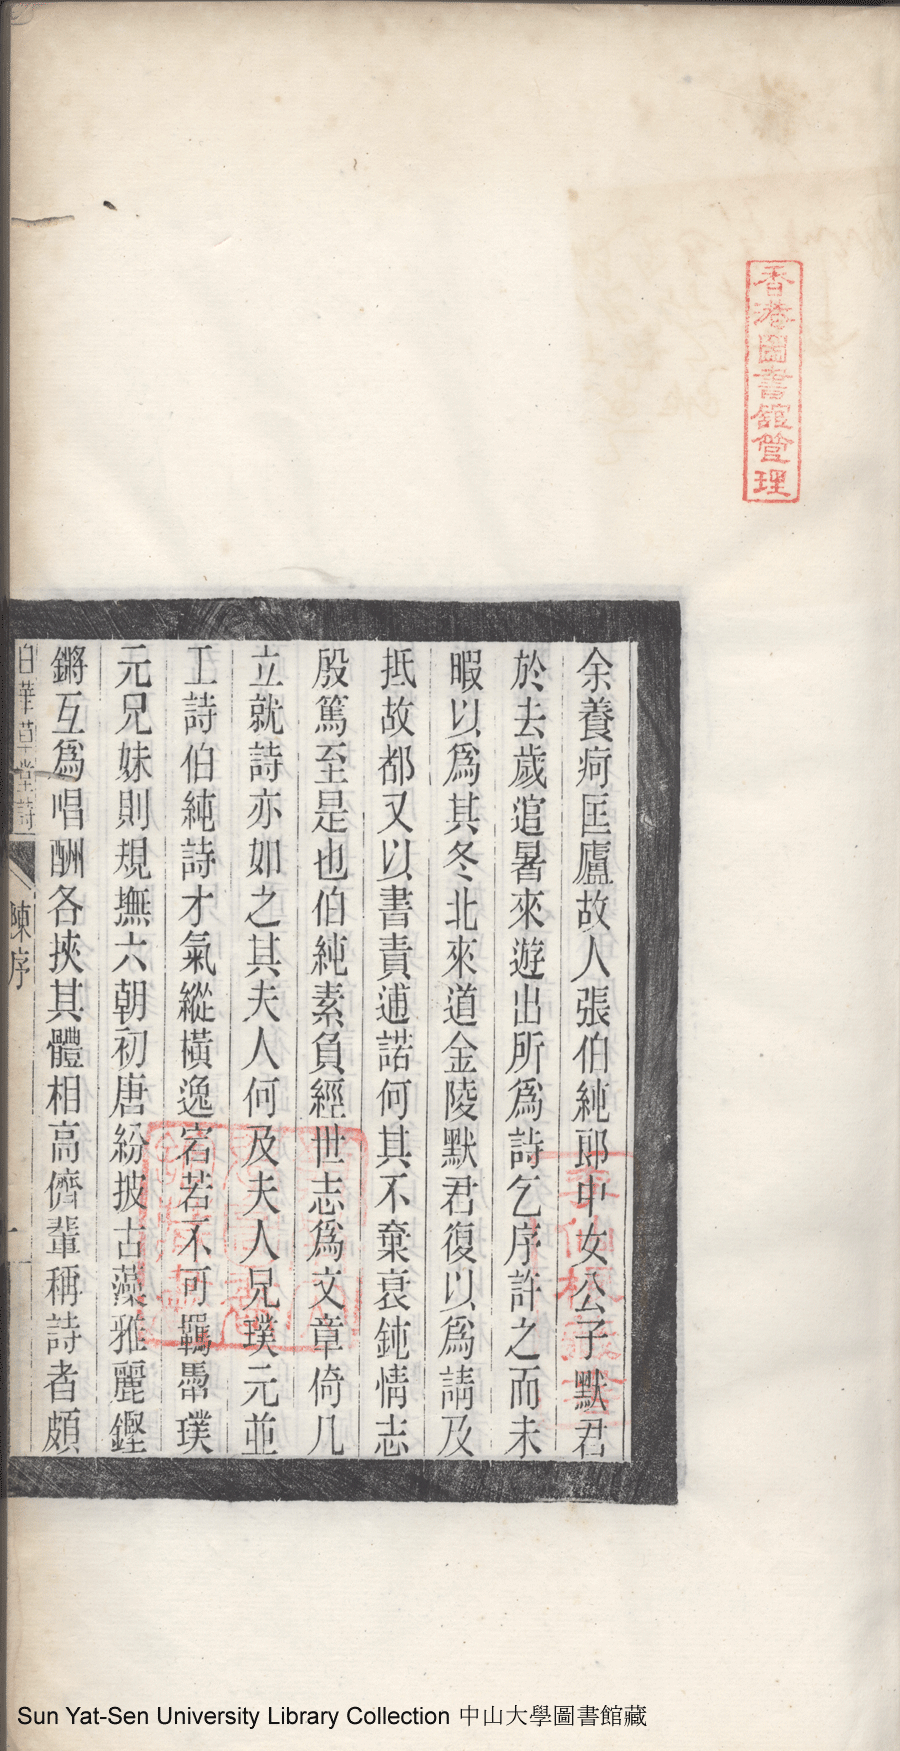 香港圖書館管理
余養疴匡廬故人張伯純郎中女公子默君
於去歲逭暑來遊出所爲詩乞序許之而未
暇以爲其冬北來道金陵默君復以爲請及
抵故都又以書責逋諾何其不棄衰鈍情志
殷篤至是也伯純素負經世志爲文章倚几
立就詩亦如之其夫人何及夫人兄璞元並
工詩伯純詩才氣縱橫逸宕若不可羈馽璞
元兄妹則規撫六朝初唐紛披古藻雅麗鏗
鏘互爲唱酬各挾其體相高儕輩稱詩者頗
白華草堂詩 陳序 一
Sun Yat-Sen University Library Collection 中山大學圖書館藏